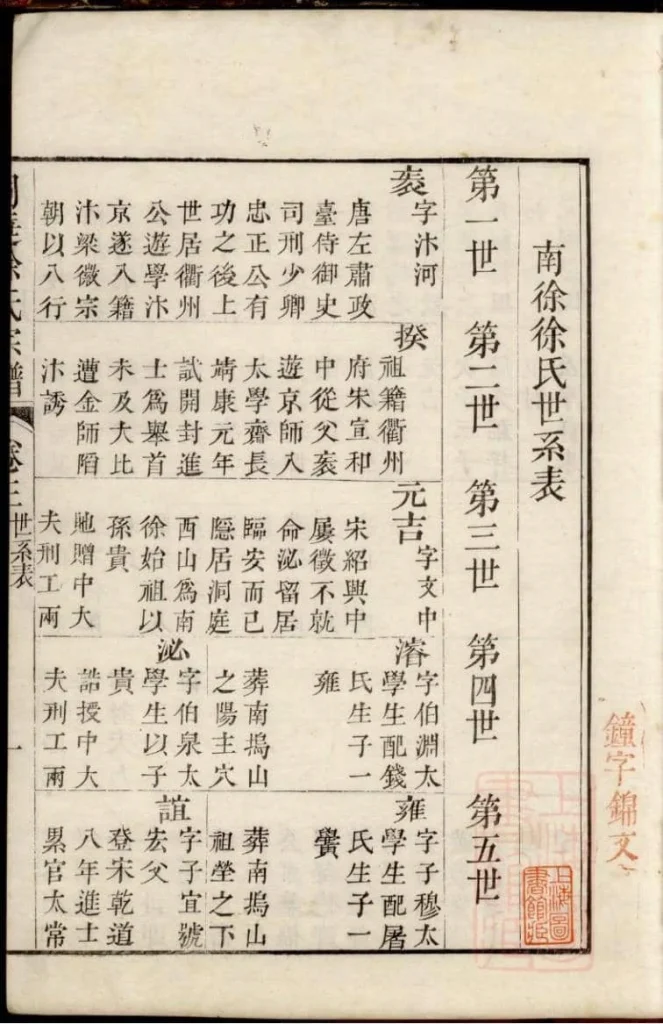 鐘字錦文
上海圖書館藏
南徐徐氏世系表
第一世 第二世 第三世 第四世 第五世
字汴河
唐左肅政
臺侍御史
司刑少卿
忠正公有
功之後上
世居衢州
公遊學汴
京遂入籍
汴梁徽宗
朝以八行
揆
祖籍衢州
府宋宣和
中從父
遊京師入
太學齋長
靖康元年
試開封進
士爲舉首
未及大比
遭金師陷
汴誘
元吉 字文中
宋紹興中
屢徵不就
命泌留居
臨安而已
隱居洞庭
西山爲南
徐始祖以
孫貴
貤贈中大
夫刑工兩
濬 字伯淵太
學生配錢
氏生子一
雍
葬南塢山
之陽主穴
泌 字伯泉太
學生以子
貴
誥授中大
夫刑工兩
雍 字子穆太
學生配屠
氏生子一
黌
葬南塢山
祖塋之下
誼 字子宜號
宏父
登宋乾道
八年進士
累官太常
徐氏宗譜 卷三 世系表 一